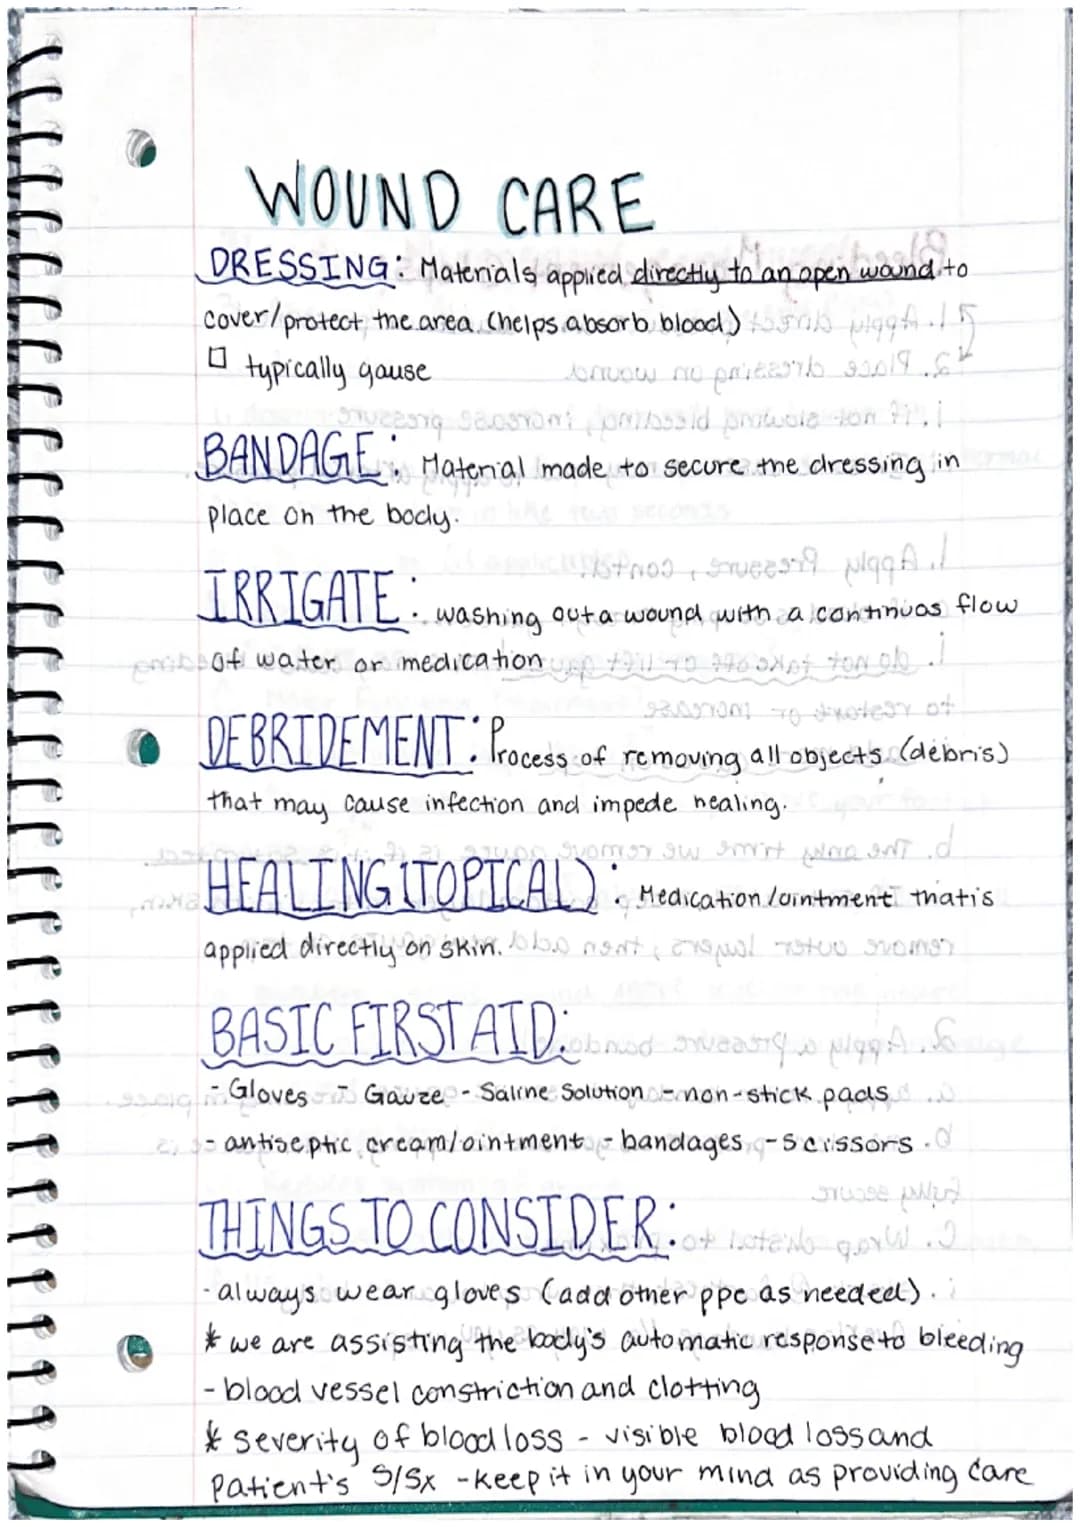 WOUND CARE
DRESSING: Materials applied directly to an open wound to
cover/protect the area (helps absorb blood)
□ typically gause
BANDAGE: Material made to secure the dressing in
place on the body.
IRRIGATE: washing out a wound with a continuos flow
of water or medication
DEBRIDEMENT: Process of removing all objects (debris)
that may cause infection and impede healing.
HEALING (TOPICAL): Medication/ointment that is
applied directly on skin.
BASIC FIRST AID:
- Gloves - Gauze - Saline Solution - non-stick pads
- antiseptic cream/ointment - bandages - scissors
THINGS TO CONSIDER:
- always wear gloves (add other ppe as needed).
* we are assisting the body's automatic response to bleeding
- blood vessel constriction and clotting
* severity of blood loss - visible blood loss and
Patient's S/Sx - keep it in your mind as providing care